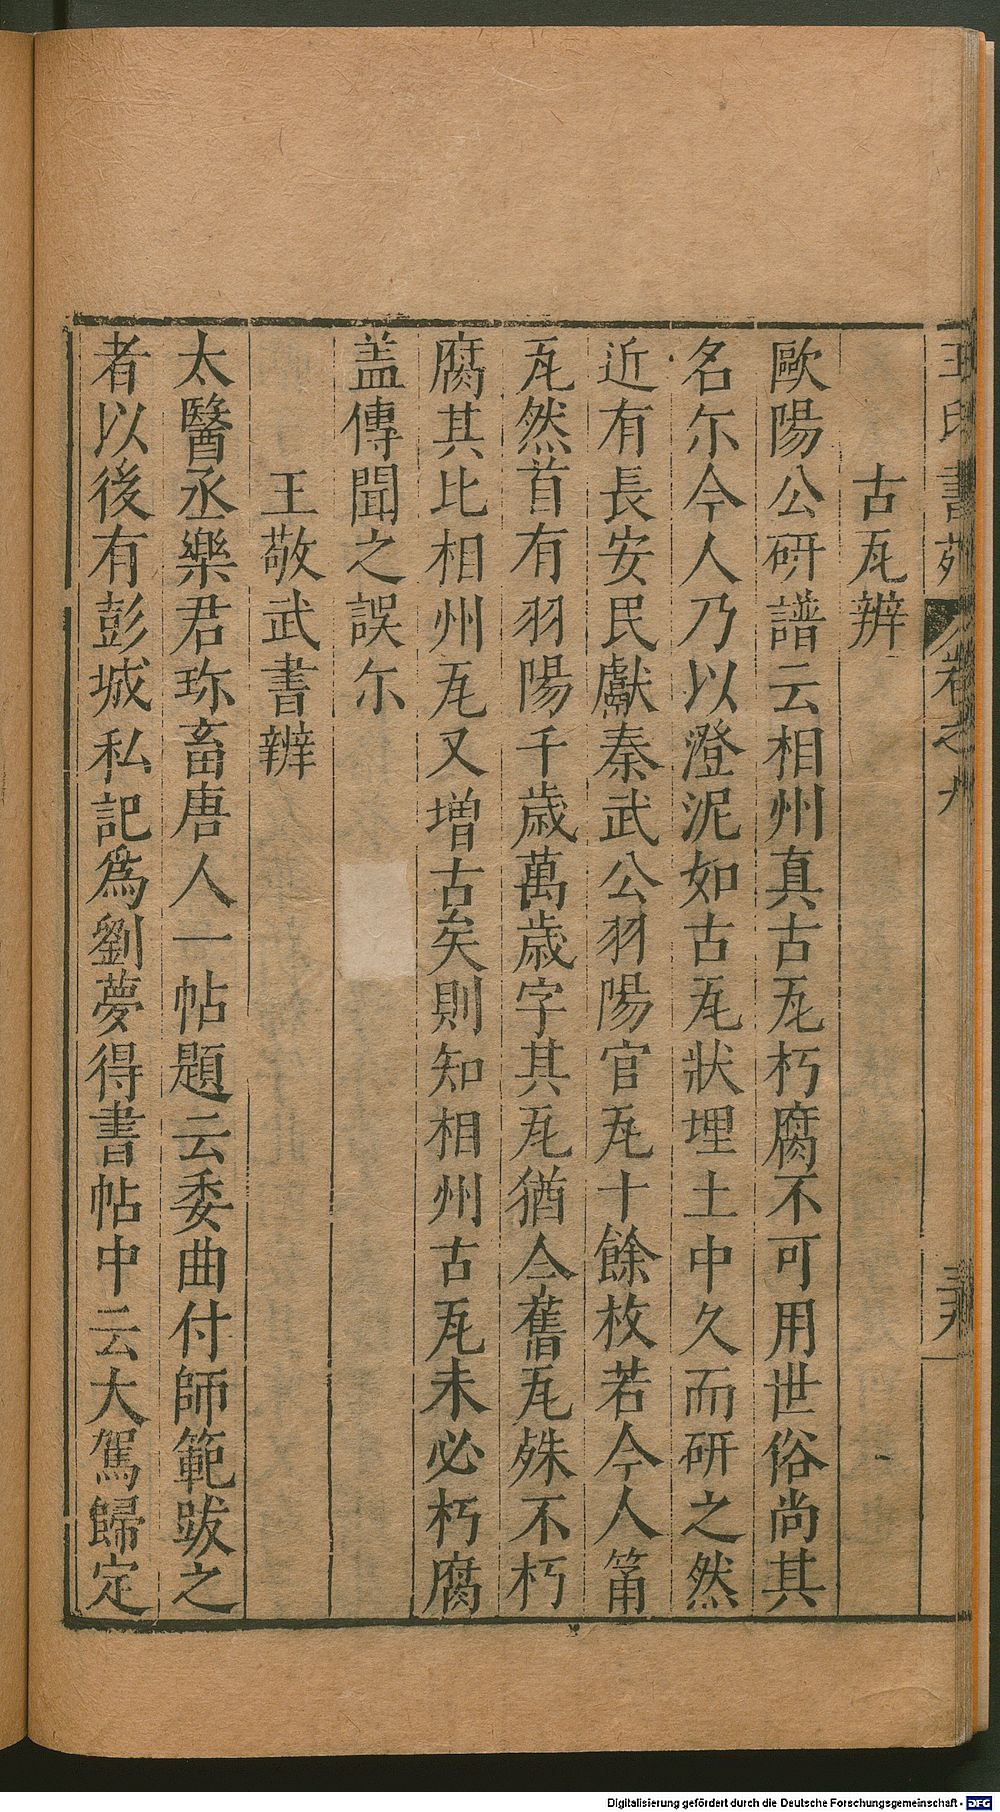 王氏書苑 卷之九
古瓦辨
歐陽公研譜云相州真古瓦朽腐不可用世俗尚其
名尓今人乃以澄泥如古瓦狀埋土中久而研之然
近有長安民獻秦武公羽陽宫瓦十餘枚若今人筩
瓦然首有羽陽千歲萬歲字其瓦猶今舊瓦殊不朽
腐其比相州瓦又增古矣則知相州古瓦未必朽腐
盖傳聞之誤尓
王敬武書辨
太醫丞樂君珎畜唐人一帖題云委曲付師範跋之
者以後有彭城私記為劉夢得書帖中云大駕歸定
Digitalisierung gefördert durch die Deutsche Forschungsgemeinschaft - DFG